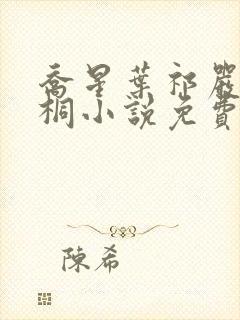 喬星葉祁嚴
桐小說免費
陳希